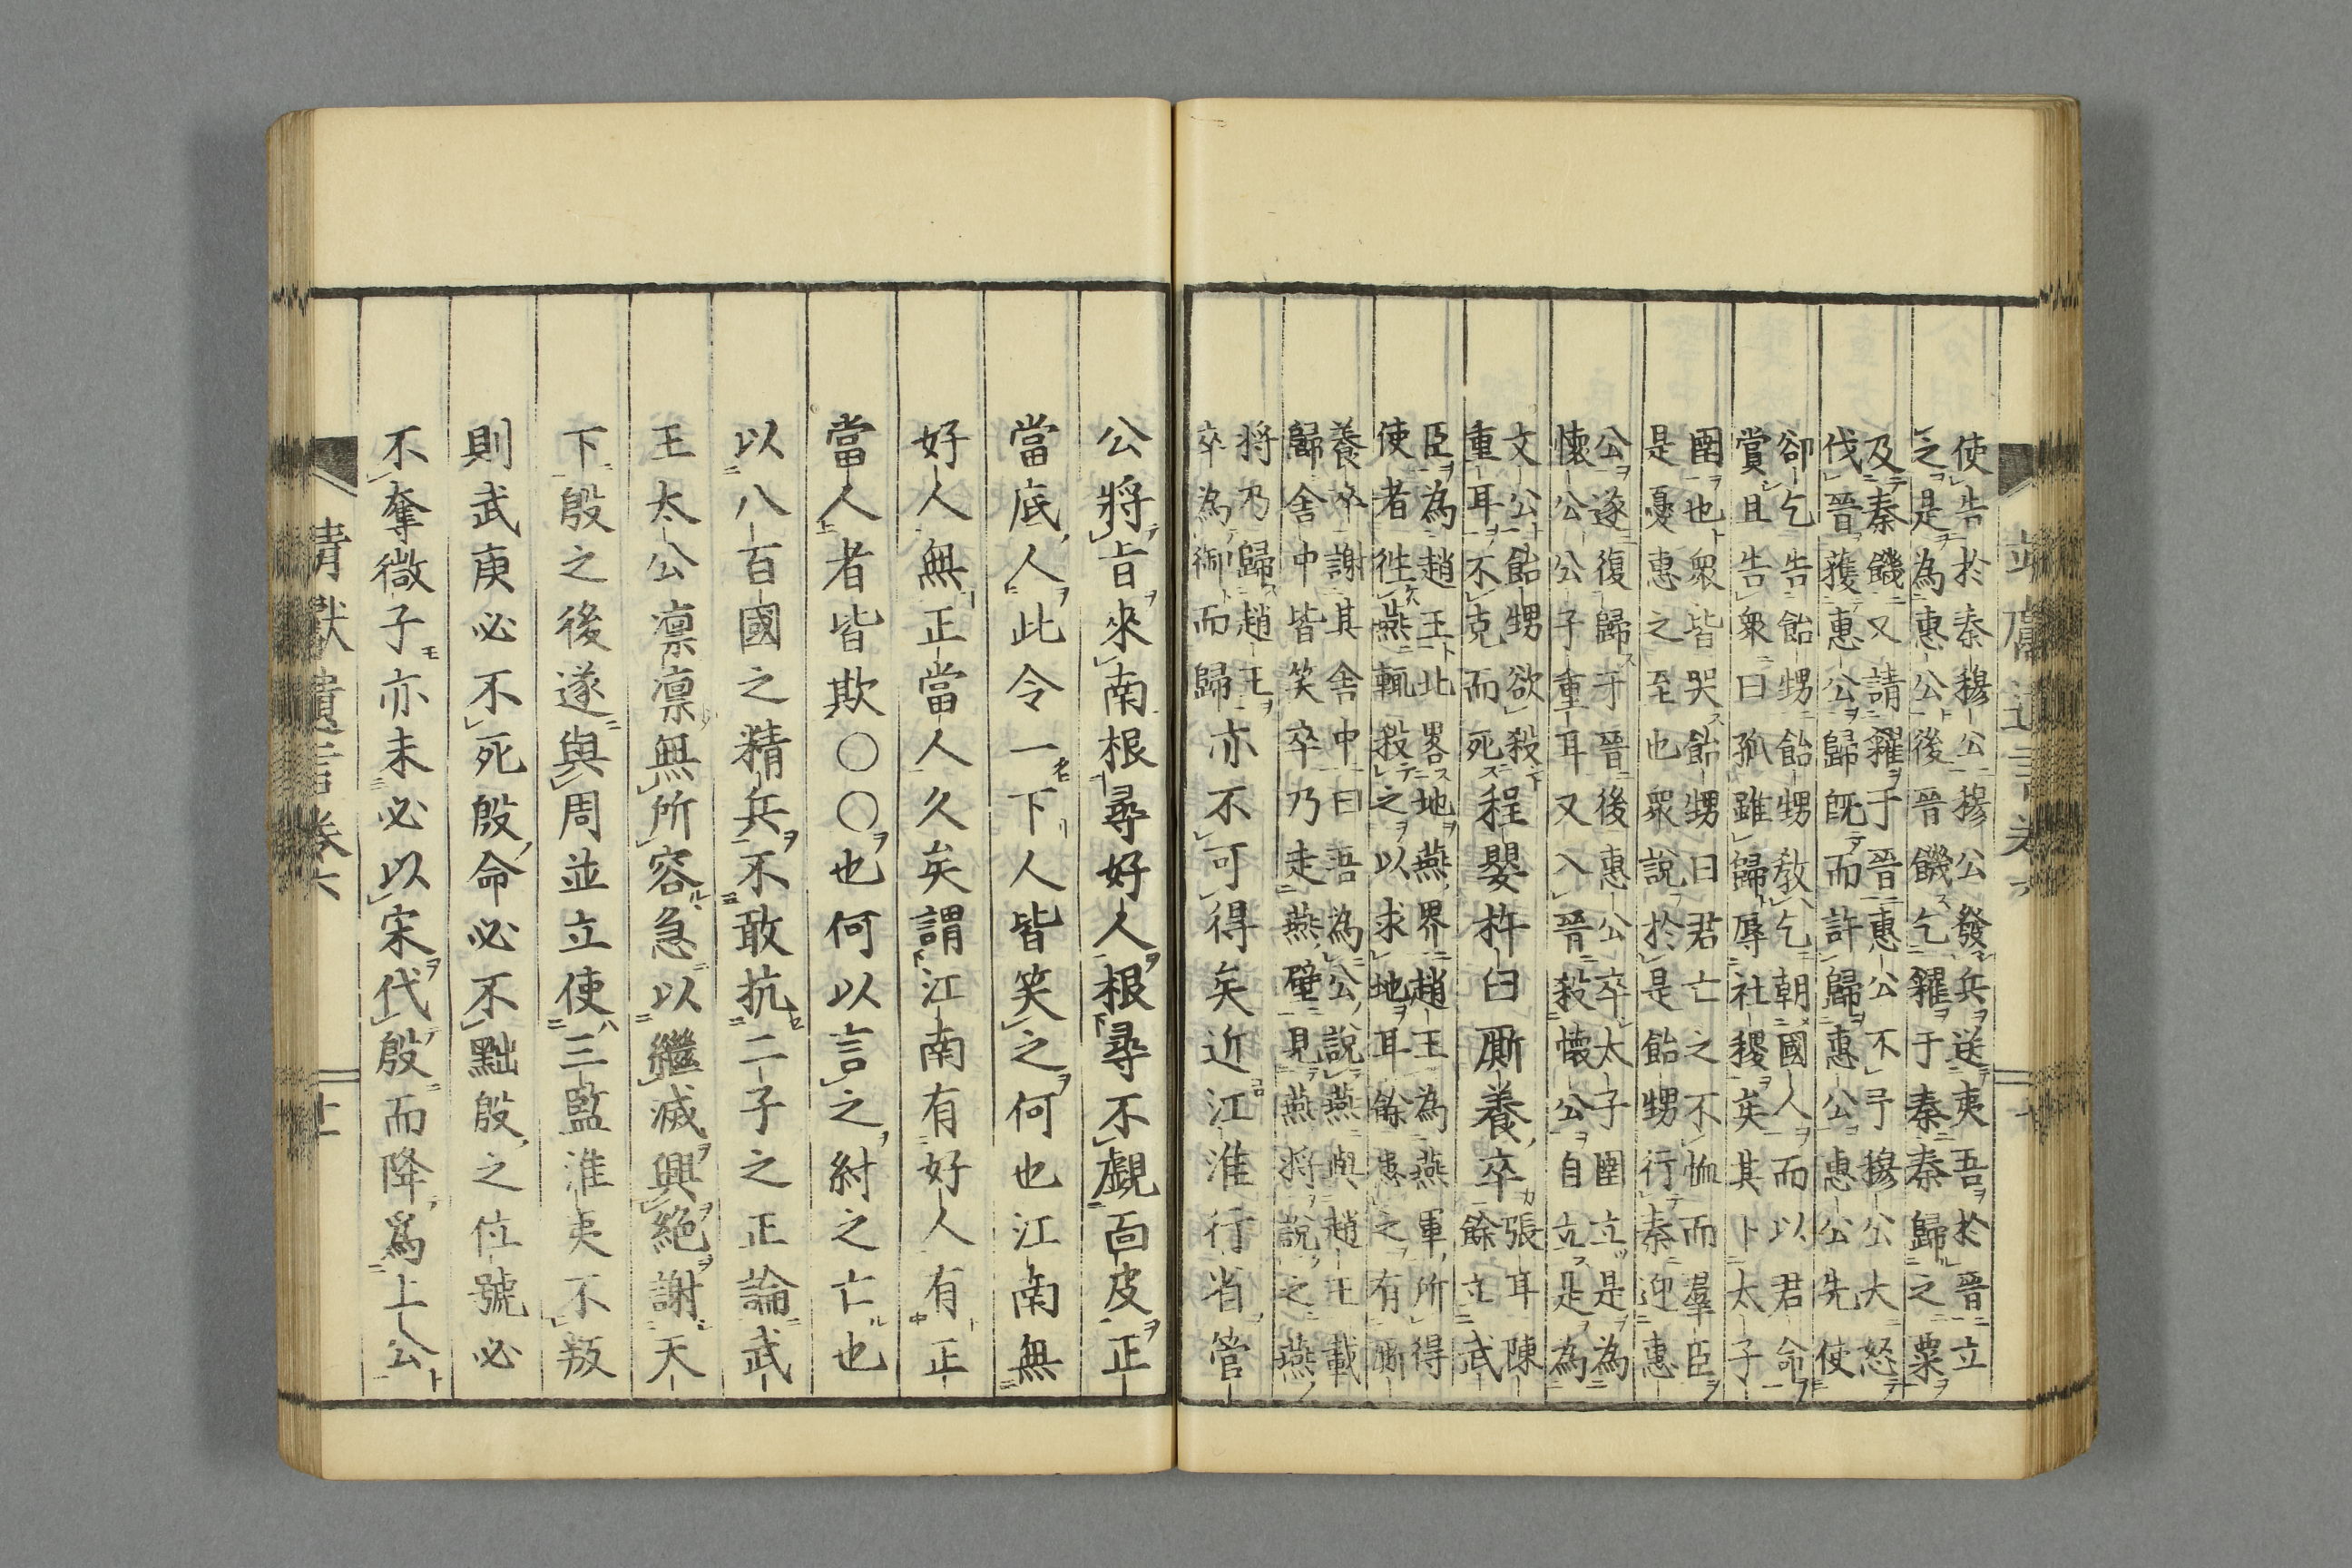 靖獻遺言卷六
十
使告於秦穆公穆公發兵送夷吾於晉立
之是為惠公後晉饑乞糴于秦秦歸之粟
及秦饑又請糴于晉惠公不予穆公大怒
伐晉獲惠公歸既而許歸惠公惠公先使
卻乞告飴甥飴甥敎乞朝國人而以君命
賞且告衆曰孤雖歸辱社稷矣其卜太子
圉也衆皆哭飴甥曰君亡之不恤而羣臣
是憂惠之至也衆說於是飴甥行秦迎惠
公遂復歸于晉後惠公卒太子圉立是為
懷公公子重耳又入晉殺懷公自立是為
文公飴甥欲殺
重耳不克而死
程嬰杵臼厮養卒
張耳陳
餘立武
臣為趙王北畧地燕界趙王為燕軍所得
使者徃燕輒殺之以求地耳餘患之有厮
養卒謝其舎中曰吾為公說燕與趙王載
歸舎中皆笑卒乃走燕壁見燕將說之燕
將乃歸趙王
卒為御而歸
亦不可得矣近江淮行省管
公將旨來南根尋好人根尋不覷靣皮正
當底人此令一下人皆笑之何也江南無
好人無正當人久矣謂江南有好人有正
當人者皆欺〇〇也何以言之紂之亡也
以八百國之精兵不敢抗二子之正論武
王太公凛凛無所容急以繼滅興絕謝天
下殷之後遂與周並立使三監淮夷不叛
則武庚必不死殷命必不黜殷之位號必
不奪微子亦未必以宋代殷而降爲上公
靖獻遺言卷六
十一